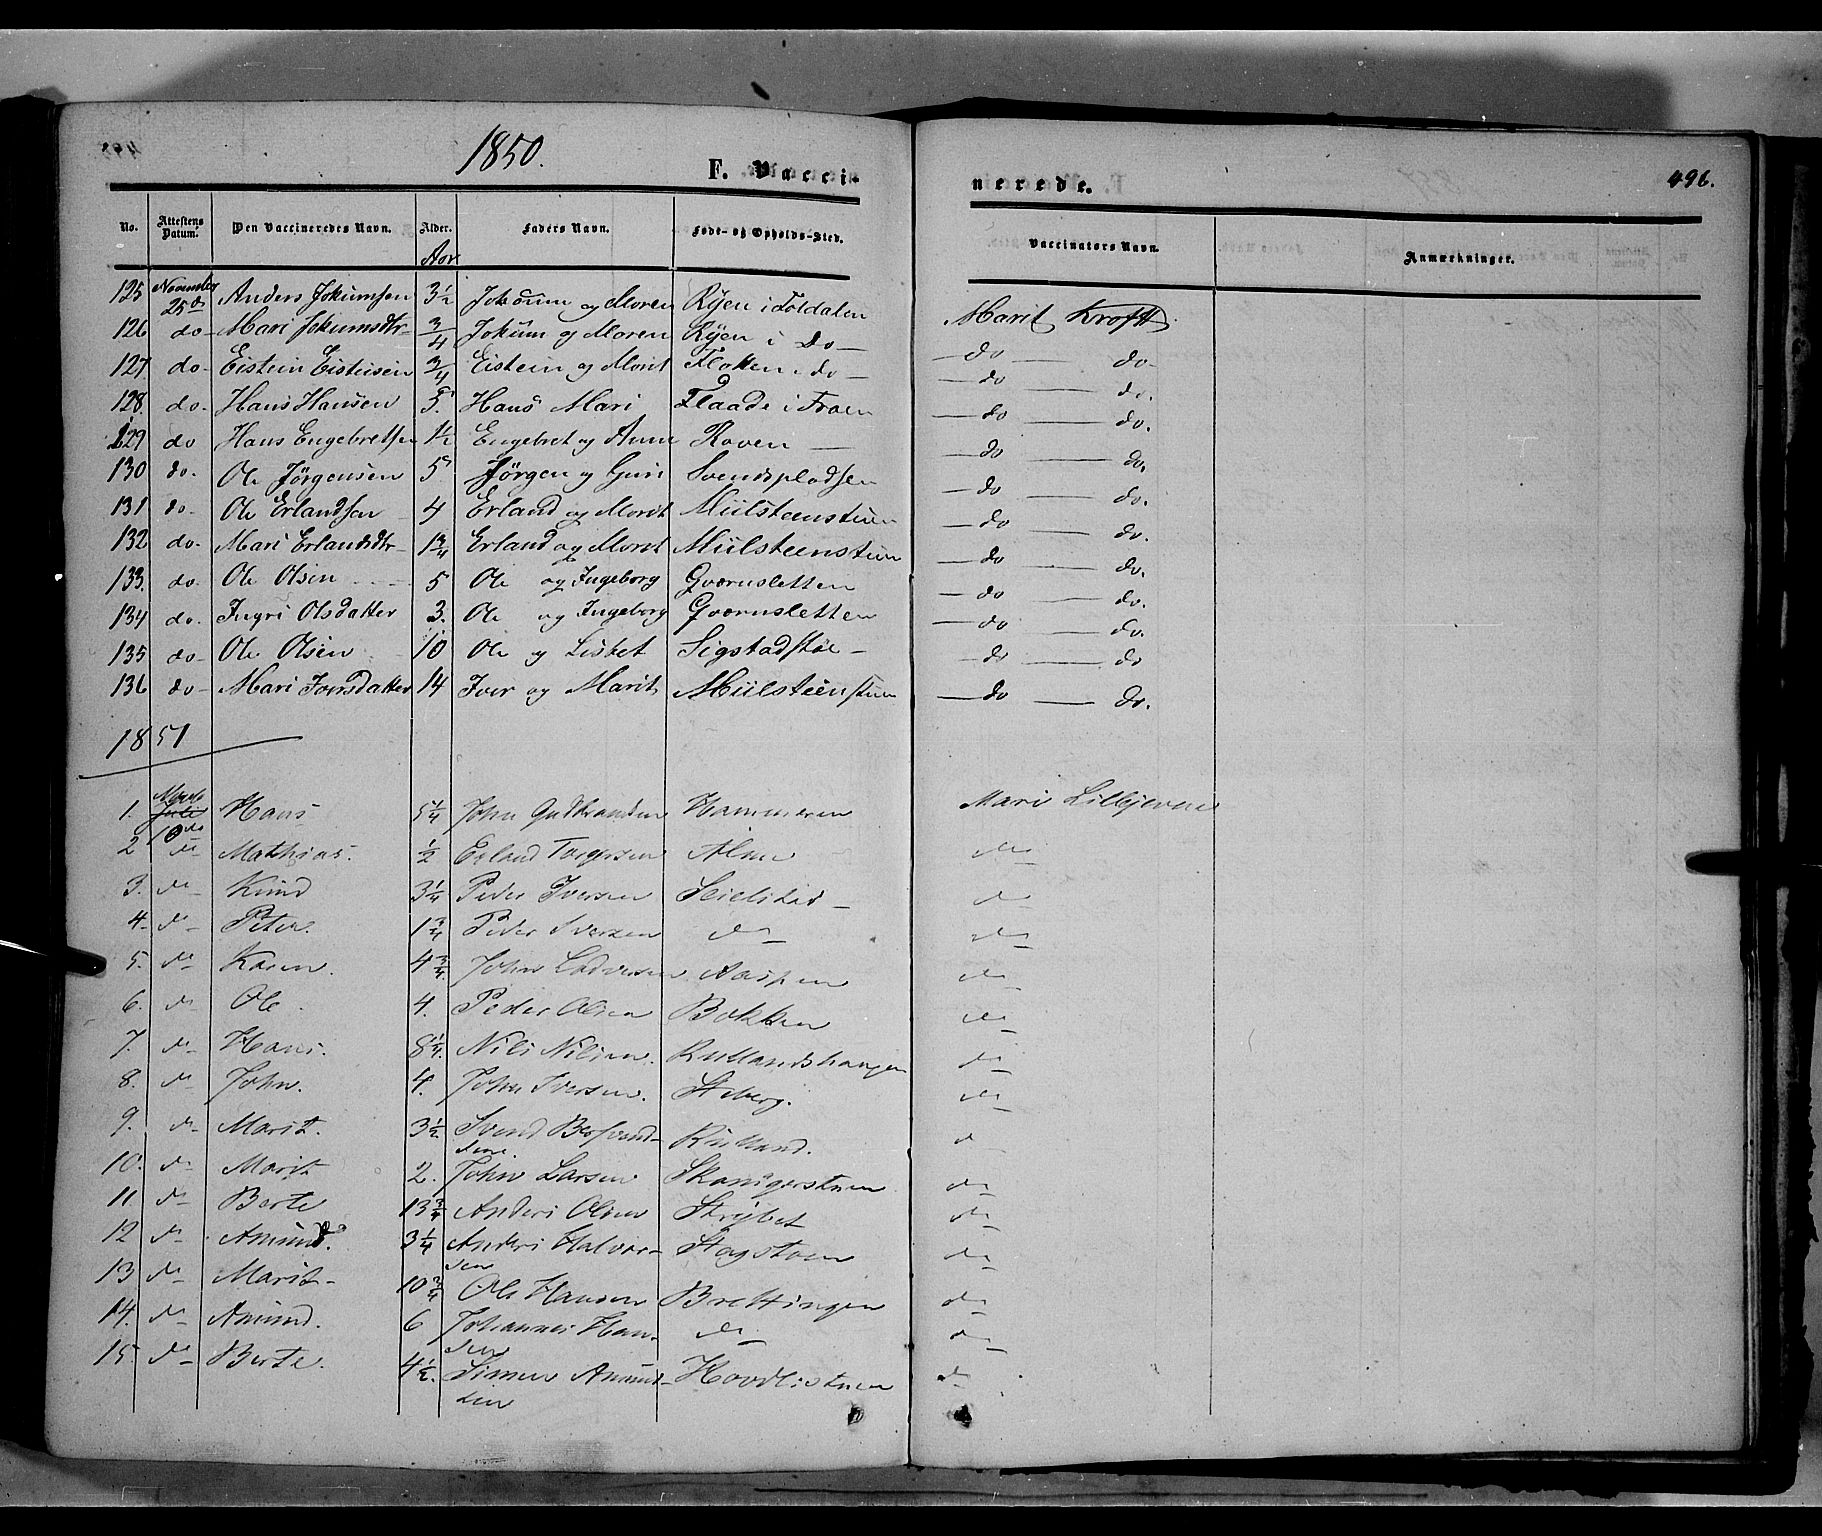 1850.
F. Vacci-
nerede.
496.
No. Attestens Datum. Den Vaccineredes Navn. Alder. Faders Navn. Føde- og Opholds-Sted. Vaccinators Navn. Anmærkninger.
Aar
125 November 25de Anders Jokumsen 3½ Jokum og Maren Ryen i Foldalen Marit Kroft
126 do- Mari Jokumsdtr- 3/4 Jokum og Maren Ryen i do- -do do-
127. do- Eistein Eisteisen 3/4 Eistein og Marit Flotten i do- -do do.
128. do- Hans Hansen 5. Hans Mari Flaade i Froen -do do.
129 do Hans Engebretsen 1½ Engebret og Anne Roven -do do.
130 do- Ole Jørgensen 5 Jørgen og Guri Svendspladsen -do do.
131 do- Ole Erlandsen 4 Erland og Marit Miilsteenstuen -do do.
132 do- Mari Erlandsdtr- 1¾ Erland og Marit Miilsteenstuen -do do.
133. do- Ole Olsen 5 Ole og Ingeborg Qværnsletten -do do.
134 do- Ingri Olsdatter 3. Ole og Ingeborg Qværnsletten -do do.
135 do- Ole Olsen 10 Ole og Lisbet Sigstadstøe- -do do
136 do- Mari Iversdatter 14 Iver og Marit Miilsteenstuen -do do.
1851
1. Juli 10de Hans 5¼ John Gudbrandsen Hammeren Mari Lillhjevne
2 do Mathias. ½ Erland Torgersen Alme do
3. do Knud 3¼ Peder Iversen Seielstad- do
4- do Peter. 1¾ Peder Iversen do do
5. do Karen. 4¾ John Ladversen Aaspen do
6. do Ole. 4. Peder Olsen Bakken do
7. do Hans. 8¼. Nils Nilsen. Rullandshaugen do
8. do John. 4. John Iversen. Steberg. do
9. do Marit. 3½ Svend Bersvend-
sen. Rulland. d
10. do Marit 2. John Larsen Skaugerstuen do
11. do Berte 13¾ Anders Olsen Strybet do
12 do Amund. 3¼ Anders Halvor-
sen Stagstuen do
13 do Marit- 10¾ Ole Hansen Brettingen do
14. do Amund. 6 Johannes Han-
sen do do
15. do Berte. 4½. Simen Amund-
sen Hovdlistuen do